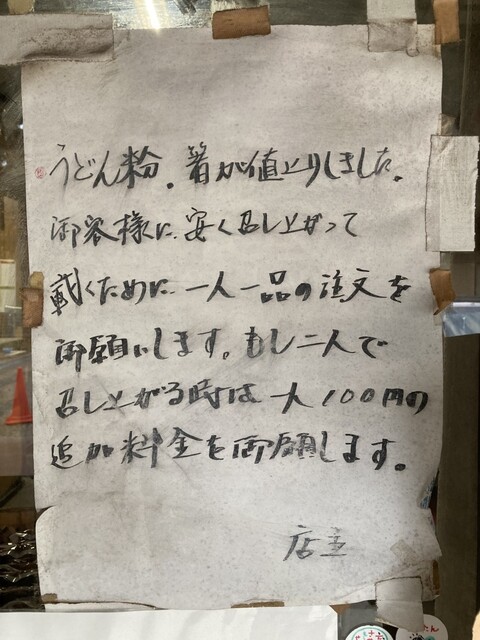 うどん粉。箸が値上りしました。
御客様に安く召し上がって
戴くために一人一品の注文を
御願いします。もし二人で
召し上がる時は一人100円の
追加料金を御願します。
店主